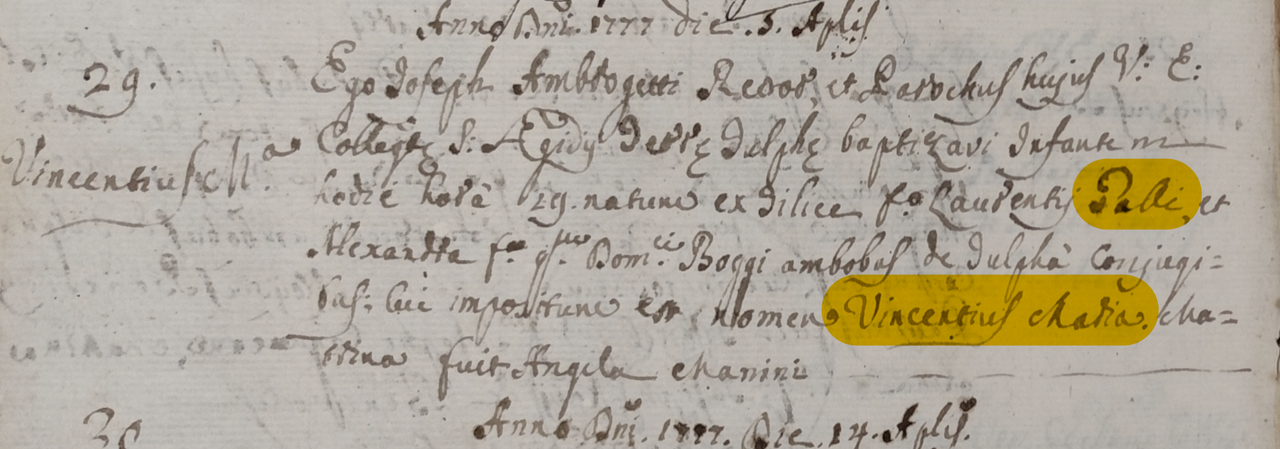 Anno Dni. 1777 die .5. Aplis
29.
Ego Joseph Ambrogetti Rector, et Parochus hujus V: E:
Vincentius Ma
Collegte S: Ægidij Terrę Julphę baptizavi Infantem
hodie horâ 29 natum ex Filice fo Laurentij Palli, et
Alexandra fa qm Domci Boggi ambobus de Julphâ Conjugi=
bus: Cui impositum est nomen Vincentius Maria. Ma=
trina fuit Angela Manini
30
Anno Dni. 1777. Die .14. Aplis.